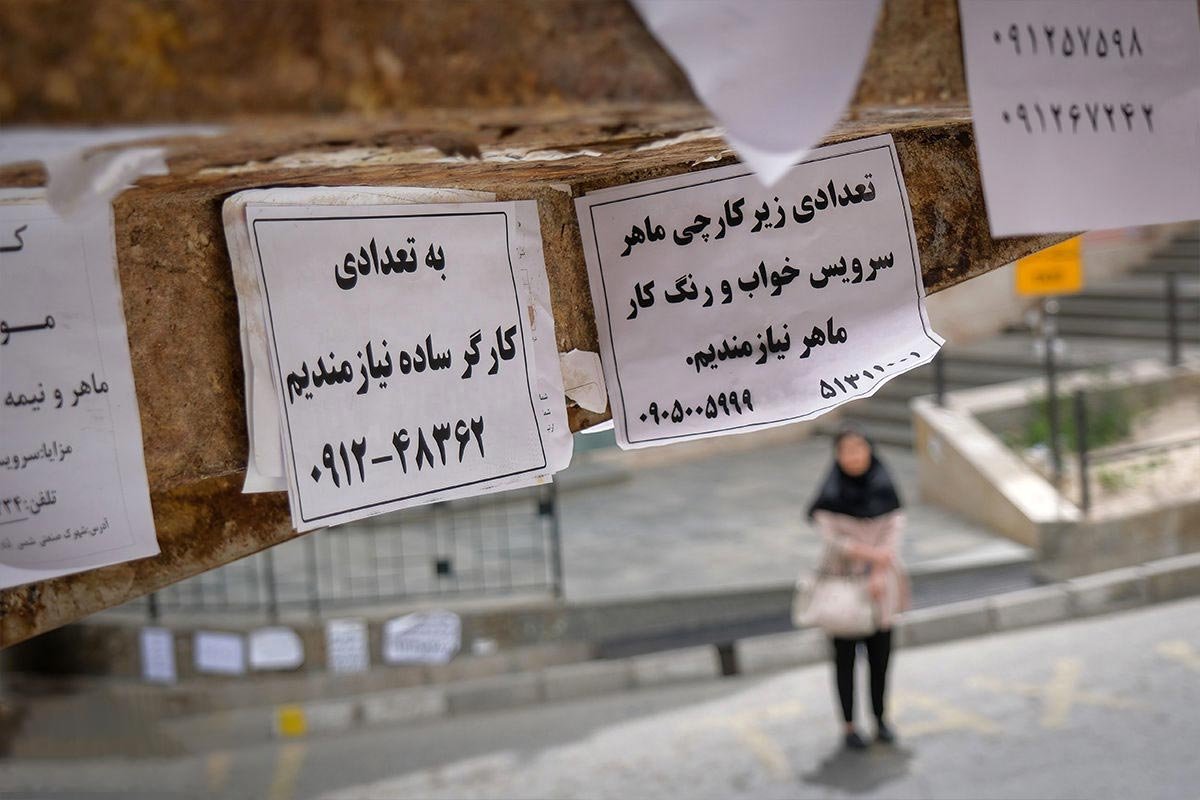 به تعدادی
کارگر ساده نیازمندیم
۰۹۱۲-۴۸۳۶۲
تعدادی زیر کارچی ماهر
سرویس خواب و رنگ کار
ماهر نیازمندیم.
۰۹۰۵۰۰۵۹۹۹
۰۹۱۲۵۷۵۹۸
۰۹۱۲۶۷۲۴۲
ماهر و نیمه
مزایا:سرویس
تلفن:
آدرس:شهرک صنعتی شمس